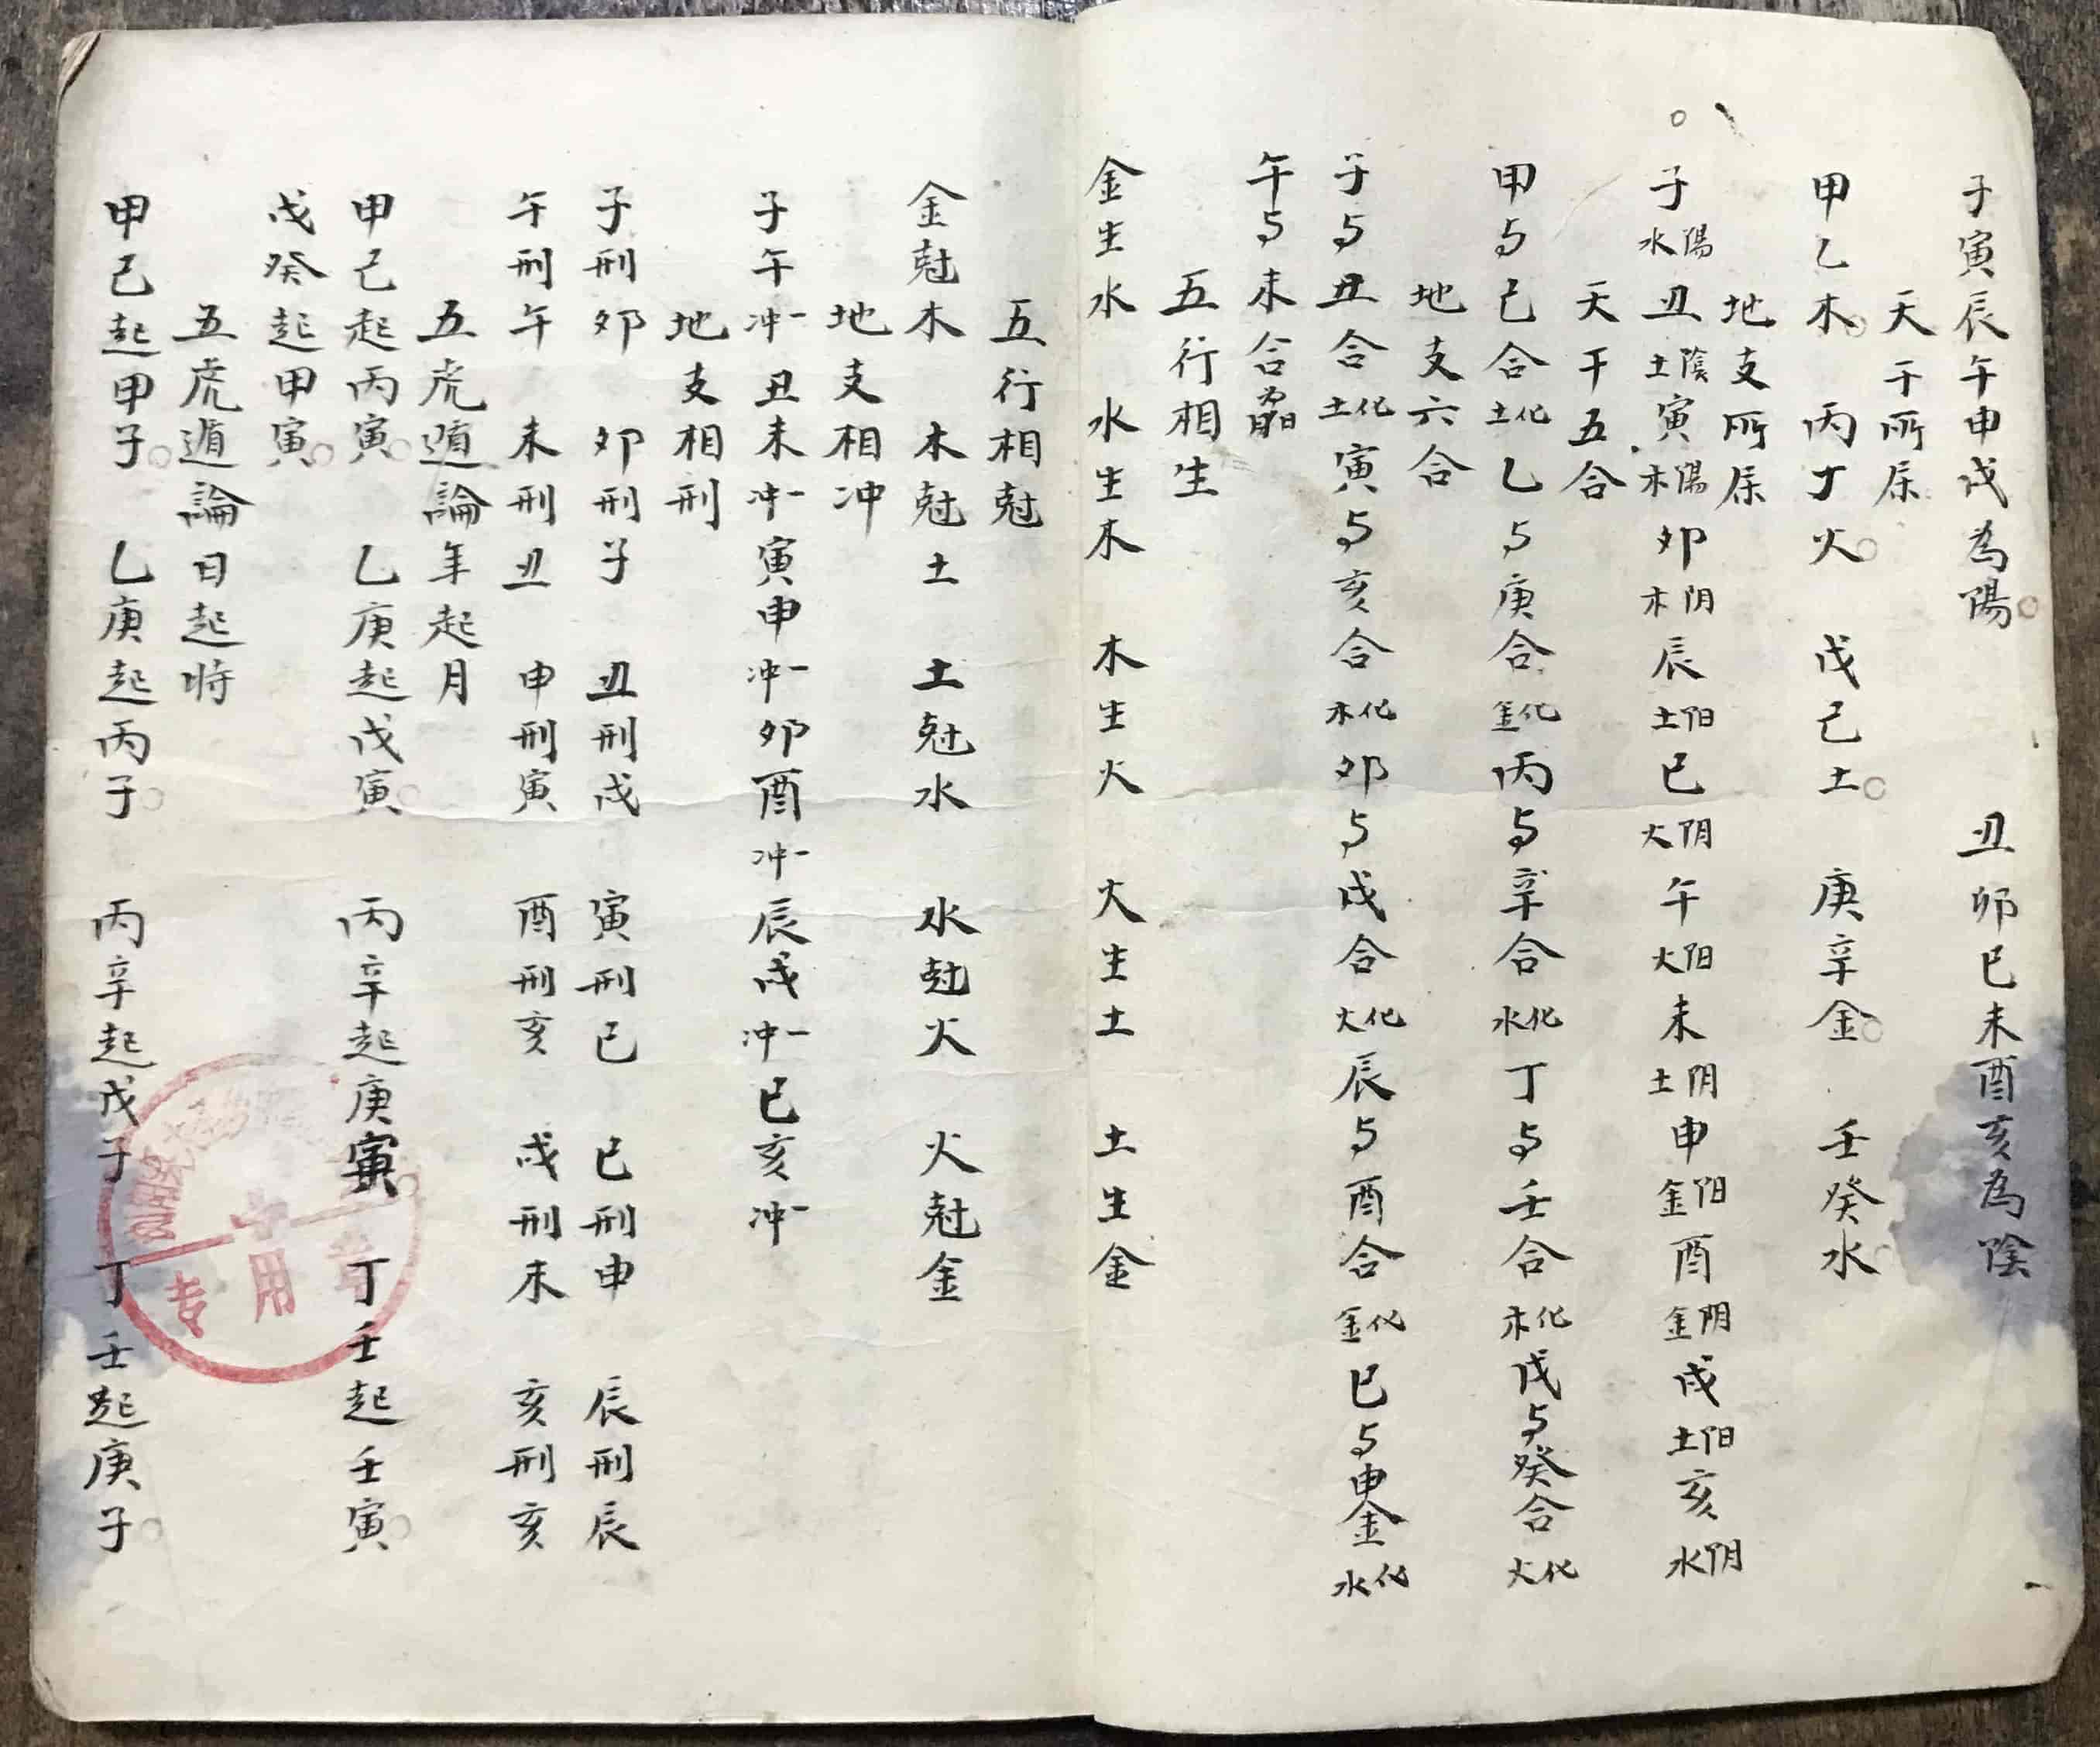 子寅辰午申戌為陽。丑卯巳未酉亥為陰
天干所属
甲乙木。丙丁火。戊己土。庚辛金。壬癸水。
地支所属
子水陽丑土陰寅木陽卯木阴辰土阳巳火阴午火阳未土阴申金阳酉金阴戌土阳亥水阴
天干五合
甲与己合化土乙与庚合化金丙与辛合化水丁与壬合化木戊与癸合化火
地支六合
子与丑合化土寅与亥合化木卯与戌合化火辰与酉合化金巳与申金化水
午与未合為日月
五行相生
金生水 水生木 木生火 火生土 土生金
五行相尅
金尅木 木尅土 土尅水 水尅火 火尅金
地支相冲
子午一冲丑未一冲寅申一冲卯酉一冲辰戌一冲巳亥一冲
地支相刑
子刑卯 卯刑子 丑刑戌 寅刑巳 巳刑申 辰刑辰
午刑午 未刑丑 申刑寅 酉刑亥 戌刑未 亥刑亥
五虎遁論年起月
甲己起丙寅。乙庚起戊寅。丙辛起庚寅。丁壬起壬寅。
戊癸起甲寅。
五虎遁論日起時
甲己起甲子。乙庚起丙子。丙辛起戊子 丁壬起庚子。
专用